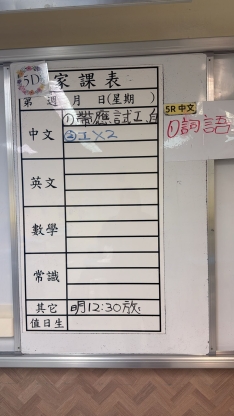 5D 家課表
第 週 月 日(星期 )
中文 ①帶應試工,自
②工×2
英文
數學
常識
其它 明12:30放
值日生
5R 中文
①詞語